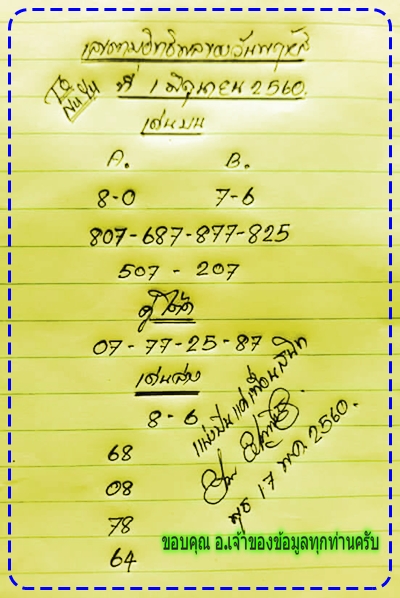 เลขตามอิทธิพลของวันพฤหัส
ที่ 1 มิถุนายน 2560.
เด่นบน
A. B.
8-0 7-6
807-687-877-825
507 - 207
คู่โต๊ด
07-77-25-87
เด่นล่าง
8-6
68
08
78
64
แบ่งปันแด่เพื่อนสนิท
พุธ 17 พ.ค. 2560.
ขอบคุณ อ.เจ้าของข้อมูลทุกท่านครับ